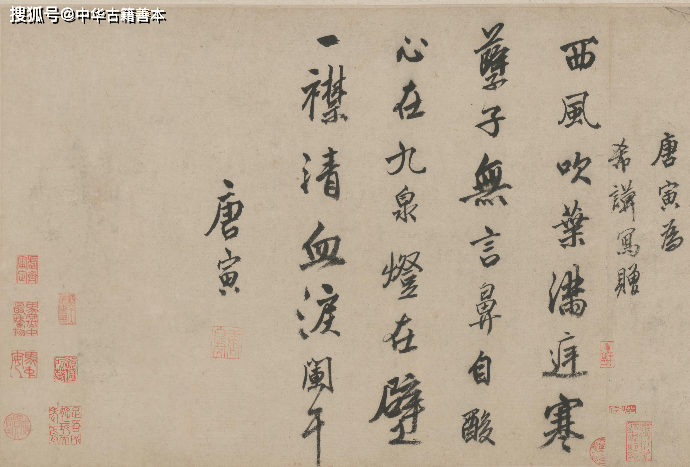 搜狐号@中华古籍善本
唐寅為
希謨寫贈
西風吹葉滿庭寒
孽子無言鼻自酸
心在九泉燈在壁
一襟清血淚闌干
唐寅